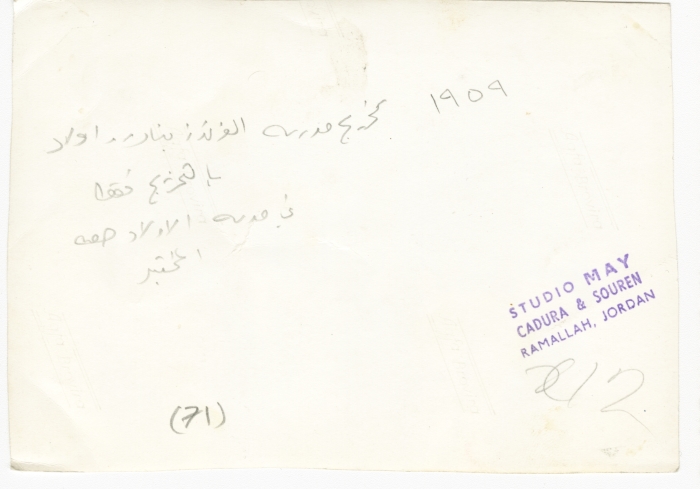 ١٩٥٩
تخريج مدرسة الفرندز بنات و اولاد
بالتخريج فقط
في مدرسة الاولاد جهة
المختبر
STUDIO MAY
CADURA & SOUREN
RAMALLAH, JORDAN
(71)